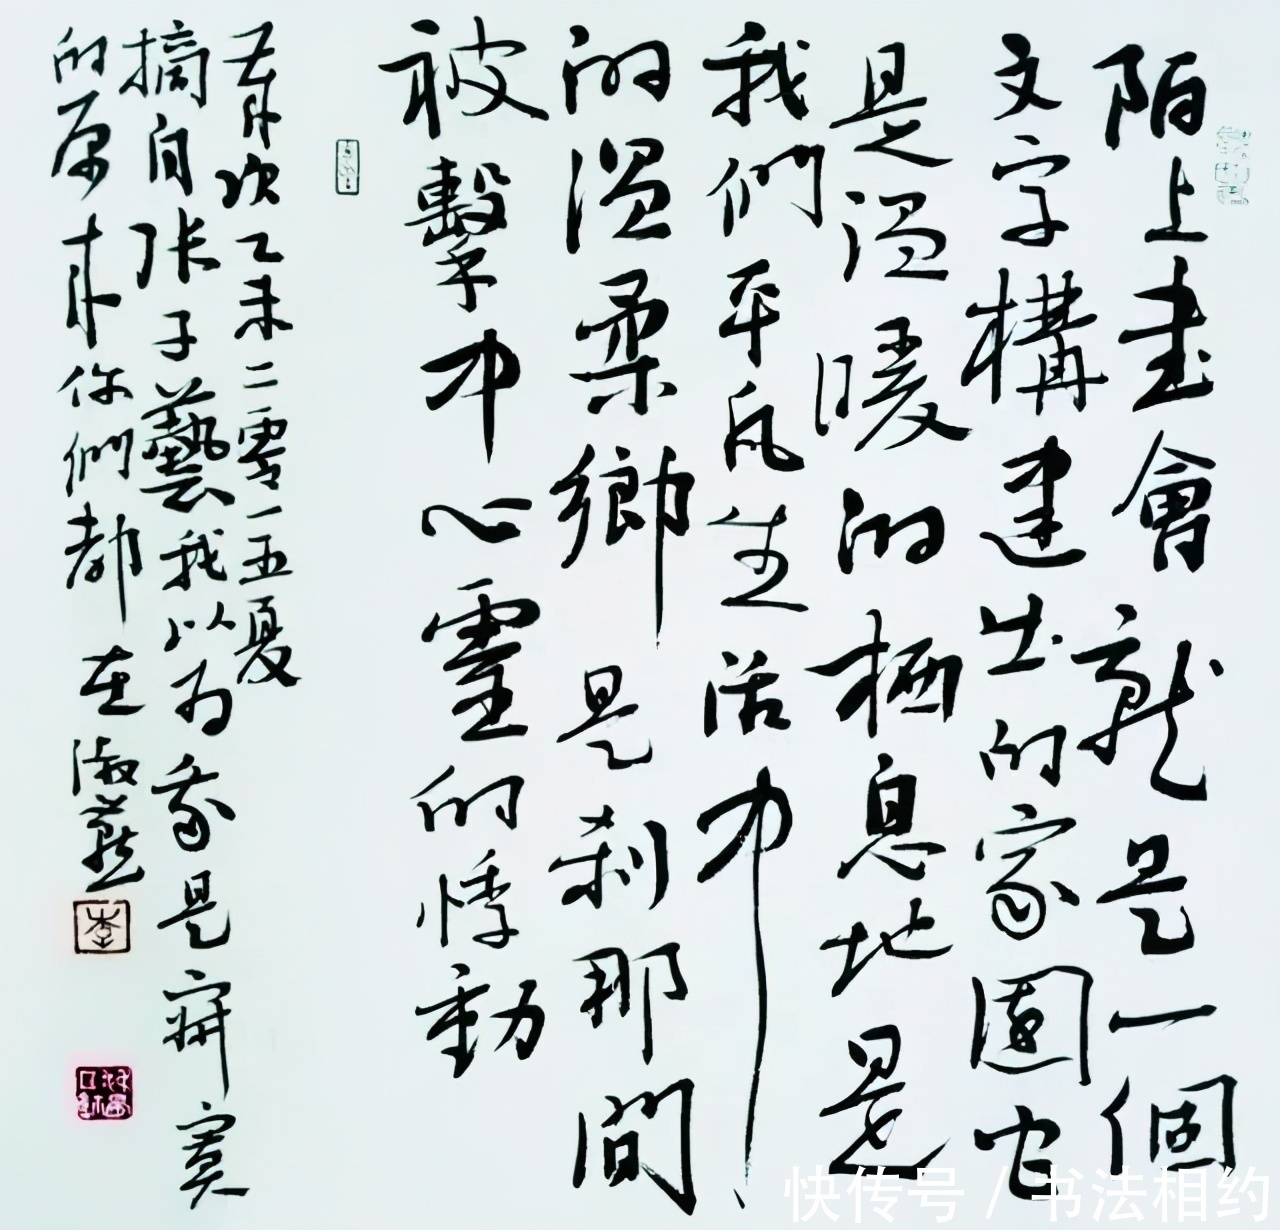 陌上書會就是一個
文字構建出的家園它
是温暖的栖息地是
我們平凡生活中
的温柔鄉是刹那間
被擊中心靈的悸動
歲次乙未二零一五夏
摘自張子藝我以爲我是寂寞
的原來你們都在淑燕
李
快传号/书法相约